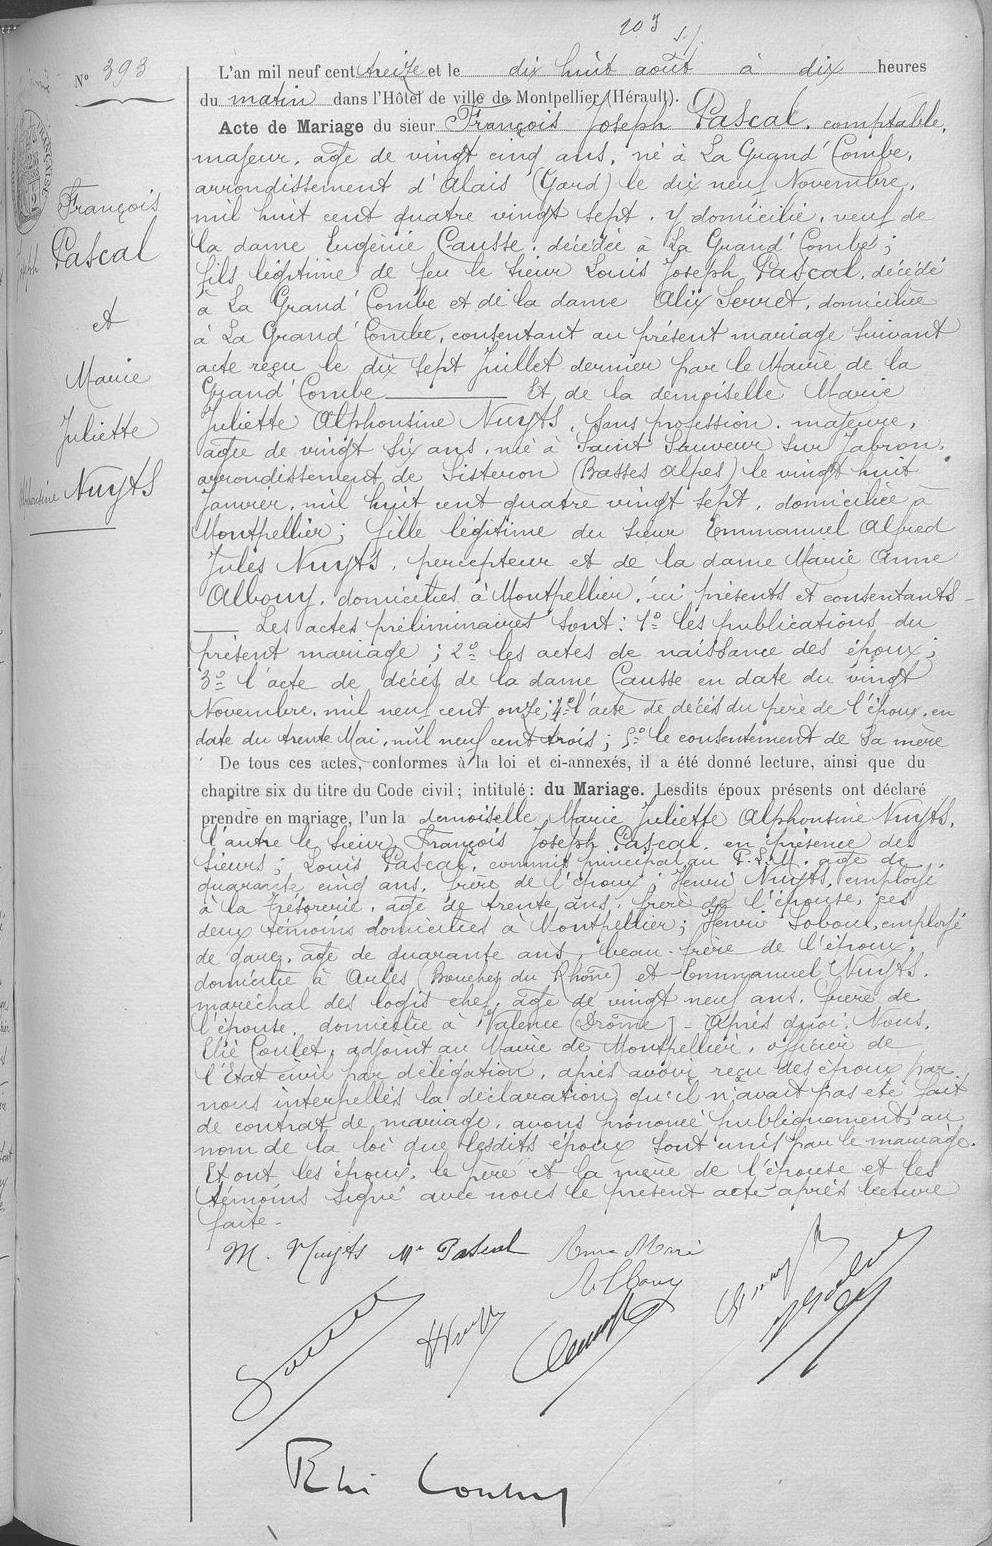 103
N° 393
François
Joseph Pascal
et
Marie
Juliette
Alphontine Nuyts
L'an mil neuf cent treize et le dix huit août à dix heures
du matin dans l'Hôtel de ville de Montpellier (Hérault).
Acte de Mariage du sieur François Joseph Pascal, comptable,
majeur, âgé de vingt cinq ans, né à La Grand'Combe,
arrondissement d'Alais (Gard) le dix neuf Novembre,
mil huit cent quatre vingt sept, y domicilié, veuf de
la dame Eugènie Causse, décédée à La Grand'Combe;
fils légitime de feu le sieur Louis Joseph Pascal, décédé
à La Grand'Combe et de la dame Alix Serret, domiciliée
à La Grand'Combe, consentant au présent mariage suivant
acte reçu le dix sept Juillet dernier par le Maire de la
Grand'Combe — Et de la demoiselle Marie
Juliette Alphontine Nuyts, sans profession, majeure,
agée de vingt six ans, née à Saint Sauveur sur Jabron,
arrondissement de Sisteron (Basses Alpes) le vingt huit
Janvier, mil huit cent quatre vingt sept, domiciliée à
Montpellier; fille légitime du sieur Emmanuel Alfred
Jules Nuyts, percepteur et de la dame Marie Anne
Albouy, domiciliés à Montpellier, ici présents et consentants -
— Les actes préliminaires sont: 1° les publications du
présent mariage; 2° les actes de naissance des époux;
3° l'acte de décès de la dame Causse en date du vingt
Novembre, mil neuf cent onze; 4° l'acte de décès du père de l'époux, en
date du trente Mai, mil neuf cent trois; 5° le consentement de sa mère
De tous ces actes, conformes à la loi et ci-annexés, il a été donné lecture, ainsi que du
chapitre six du titre du Code civil; intitulé: du Mariage. Lesdits époux présents ont déclaré
prendre en mariage, l'un la demoiselle Marie Juliette Alphontine Nuyts,
l'autre le sieur François Joseph Pascal, en présence des
sieurs; Louis Pascal, commis principal au P.L.M. agé de
quarante cinq ans, frère de l'époux; Henri Nuyts, employé
à la Trésorerie, agé de trente ans, frère de l'épouse, ces
deux témoins domiciliés à Montpellier; Henri Soboul, employé
de gare, agé de quarante ans, beau-frère de l'époux,
domicilié à Arles (Bouches du Rhône) et Emmanuel Nuyts,
maréchal des logis chef, agé de vingt neuf ans, frère de
l'épouse, domicilié à Valence (Drôme) - Après quoi, Nous,
Elié Coulet, adjoint au Maire de Montpellier, officier de
l'Etat civil par délégation, après avoir reçu des époux par
nous interpellés la déclaration qu'il n'avait pas été fait
de contrat de mariage, avons prononcé publiquement, au
nom de la loi que lesdits époux sont unis par le mariage.
Et ont les époux, le père et la mère de l'épouse et les
témoins signé avec nous le présent acte après lecture
faite -
M. Nuyts Pascal
Albouy